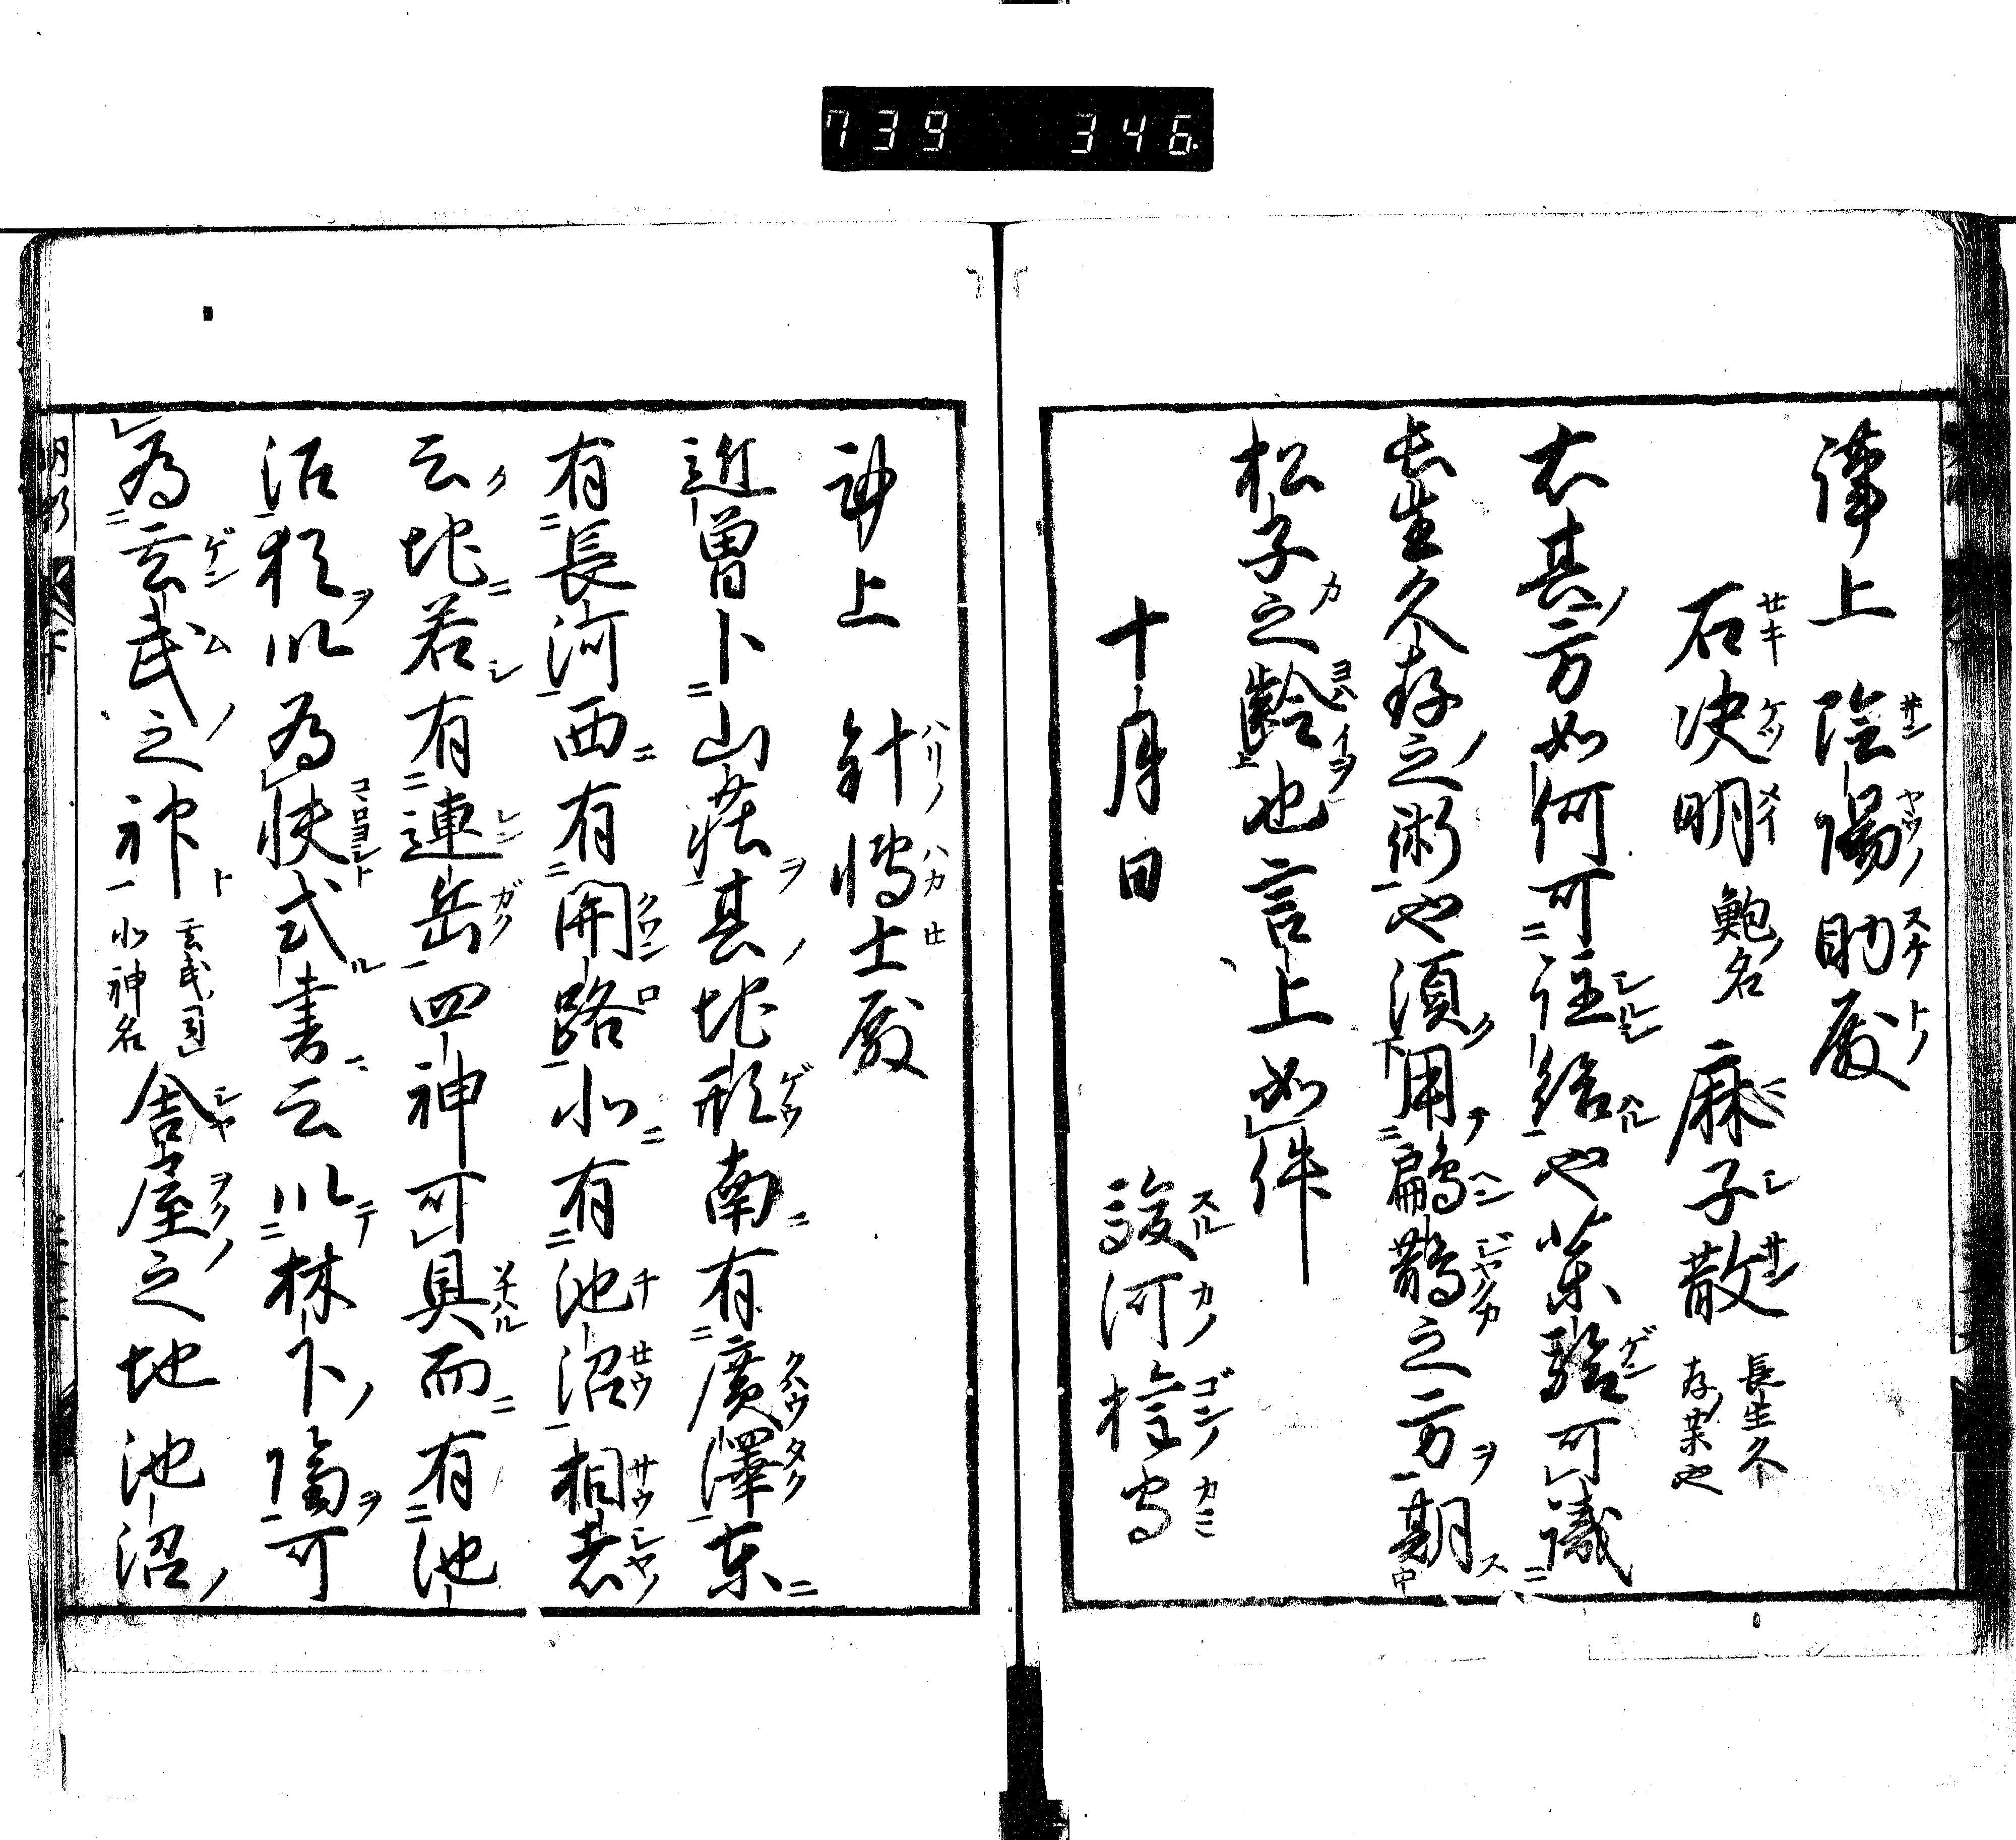 739 346
謹上 陰陽助殿
石决明 鮑名 麻子散 長生久存藥也
右其方如何可注給也藥驗可議
長生久存之術也須用扁鵲之方期
松子之齡也言上如件
十月日 駿河權守
謹上 針博士殿
近曽卜山莊其地形南有廣澤東
有長河西有開路北有池沼相者
云地若有連岳四神可具而有池
沼猶以為快式書云以林下隝可
為玄武之神 北神名 舍屋之地池沼